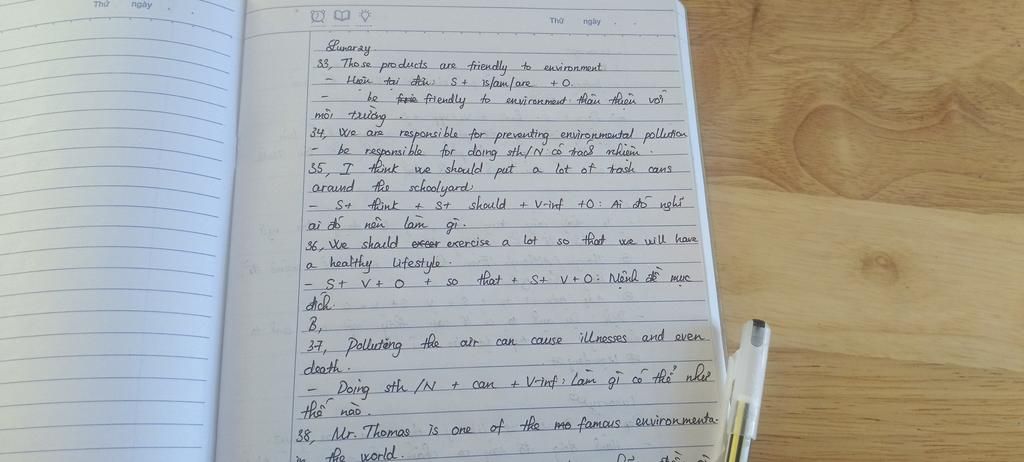 Thứ ngày
Thứ ngày
33, Those products are friendly to environment
- Hiện tại đơn: S + is/am/are + O.
- be friendly to environment: thân thiện với
môi trường.
34, We are responsible for preventing environmental pollution
- be responsible for doing sth/N có trách nhiệm.
35, I think we should put a lot of trash cans
around the schoolyard
- S+ think + S+ should + V-inf +O: Ai đó nghĩ
ai đó nên làm gì.
36, We should exercise a lot so that we will have
a healthy lifestyle.
- S+ V + O + so that + S+ V+O: Mệnh đề mục
đích.
B,
37, Polluting the air can cause illnesses and even
death.
- Doing sth/N + can + V-inf: làm gì có thể như
thế nào.
38, Mr. Thomas is one of the famous environmenta-
the world.